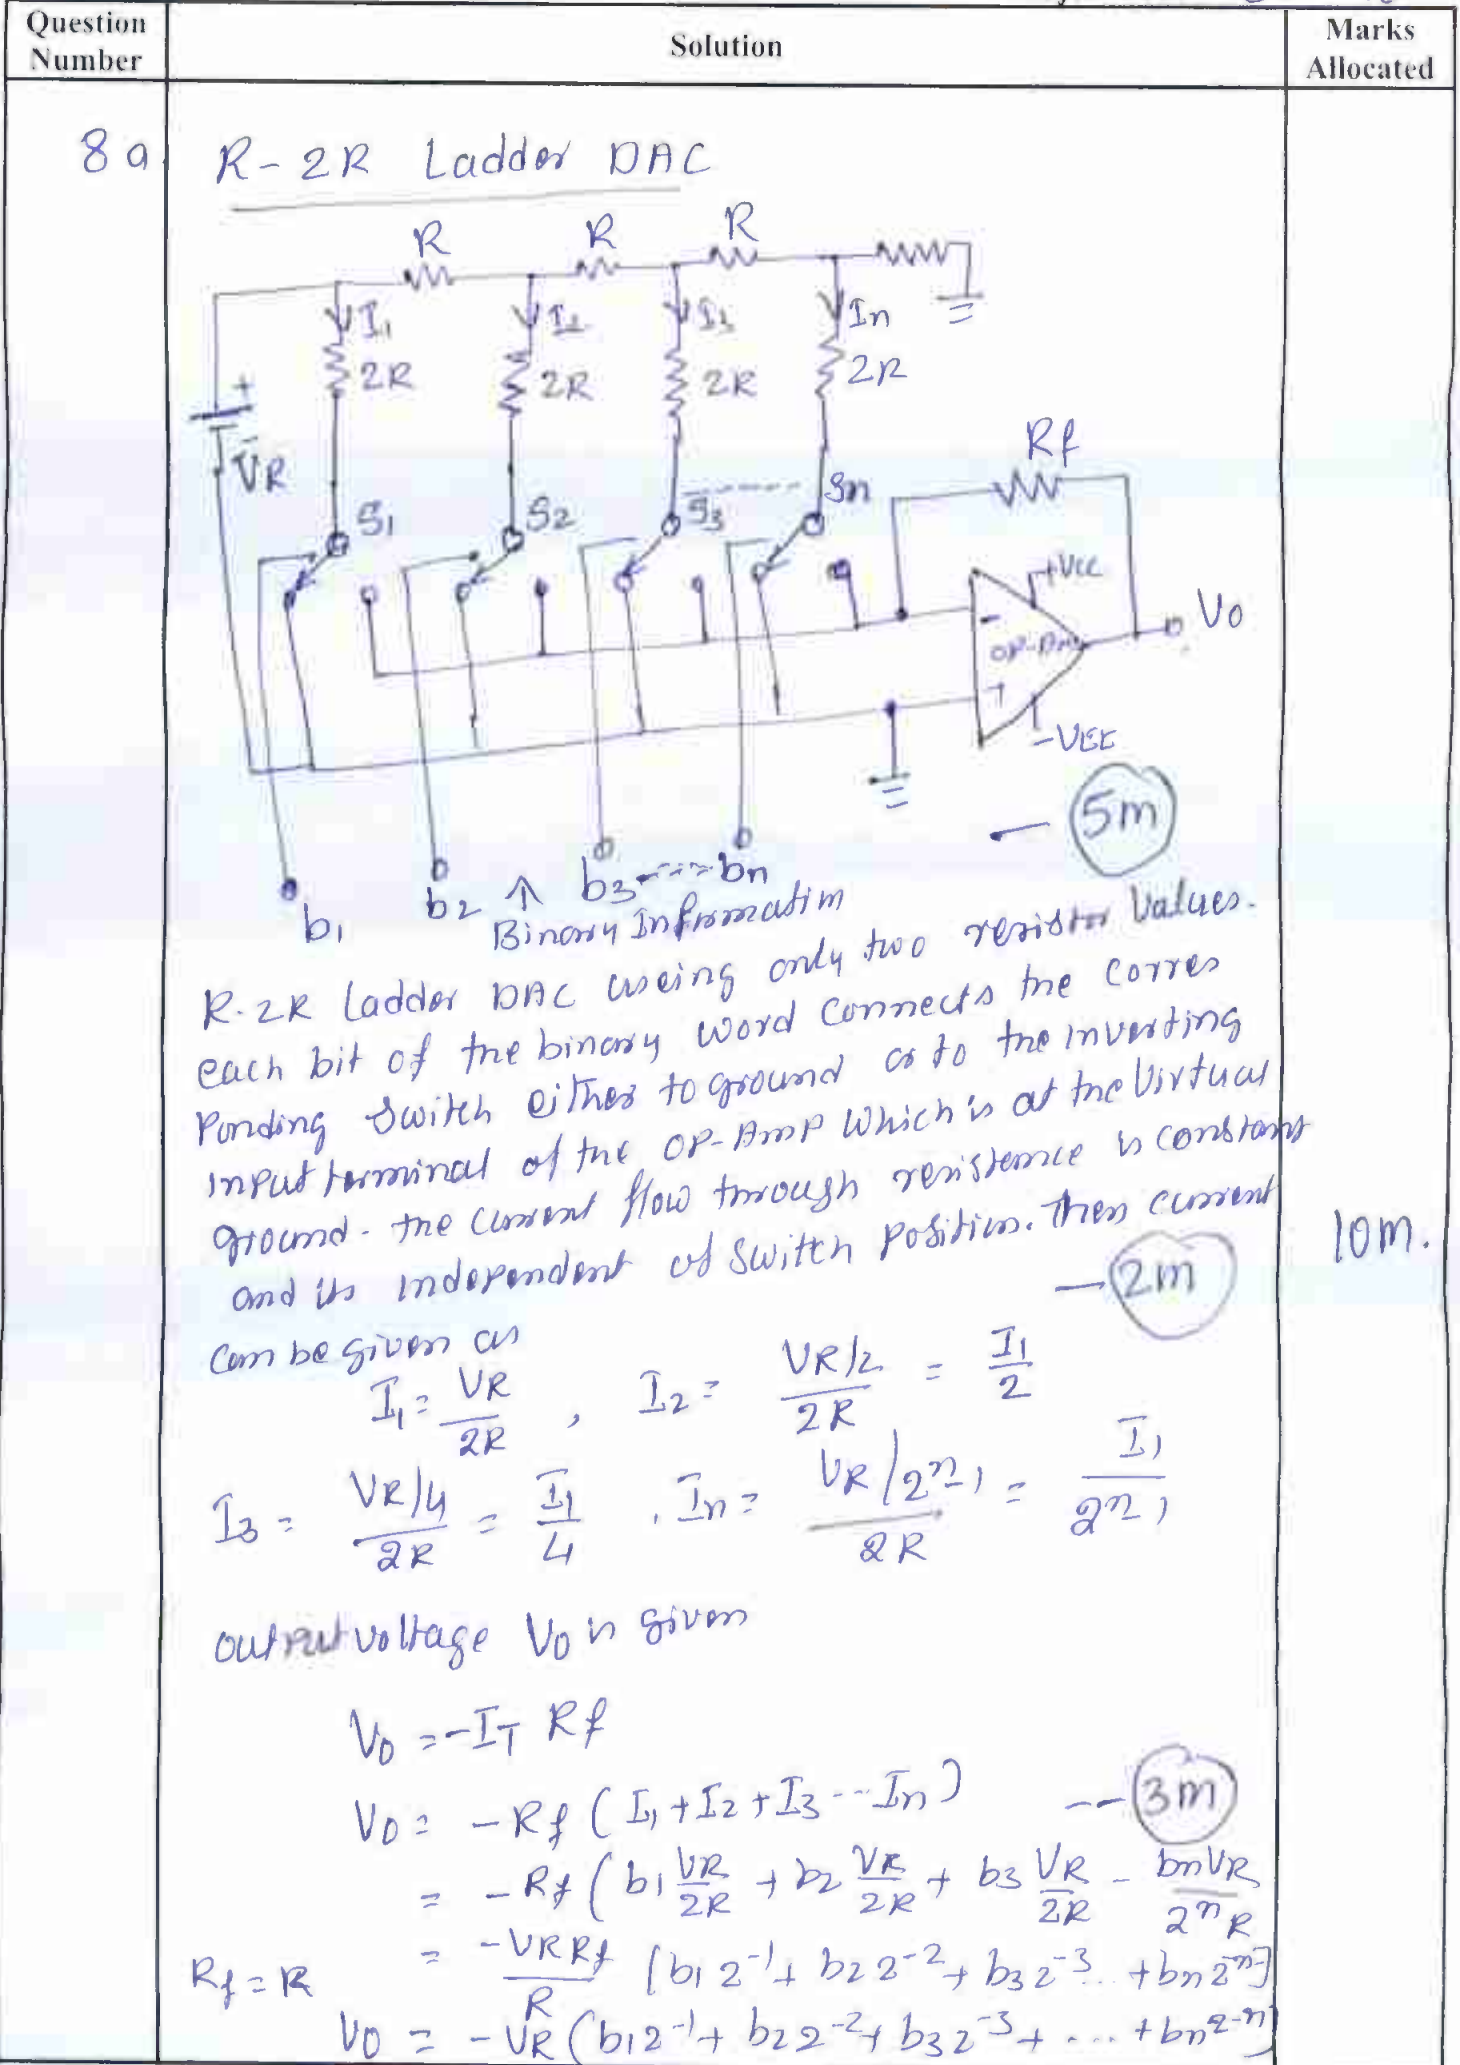 Question Number
Solution
Marks Allocated
8a
R-2R Ladder DAC
R R R
I1 I2 I3 In
2R 2R 2R 2R
+
-
VR
Rf
S1 S2 S3 ------ Sn
+VCC
-
OP-Amp
+
V0
-VEE
5m
b1 b2 ↑ b3 ----- bn
Binary Information
R-2R Ladder DAC useing only two resistor values.
each bit of the binary word connects the corres
ponding switch either to ground or to the inverting
input terminal of the OP-Amp which is at the virtual
ground. the current flow through resistance is constant
and its independent of switch position. Then current
can be given as
— 2m
10m.
I1 = VR/2R , I2 = (VR/2)/2R = I1/2
I3 = (VR/4)/2R = I1/4 , In = (VR/2^n-1)/2R = I1/2^n-1
output voltage V0 is given
V0 = -IT Rf
V0 = -Rf (I1 + I2 + I3 --- In) -- 3m
= -Rf (b1 VR/2R + b2 VR/2R + b3 VR/2R - bnVR/2^n R
= -VR Rf/R [b1 2^-1 + b2 2^-2 + b3 2^-3 ... + bn 2^-n]
Rf = R
V0 = -VR (b1 2^-1 + b2 2^-2 + b3 2^-3 + .... + bn 2^-n]